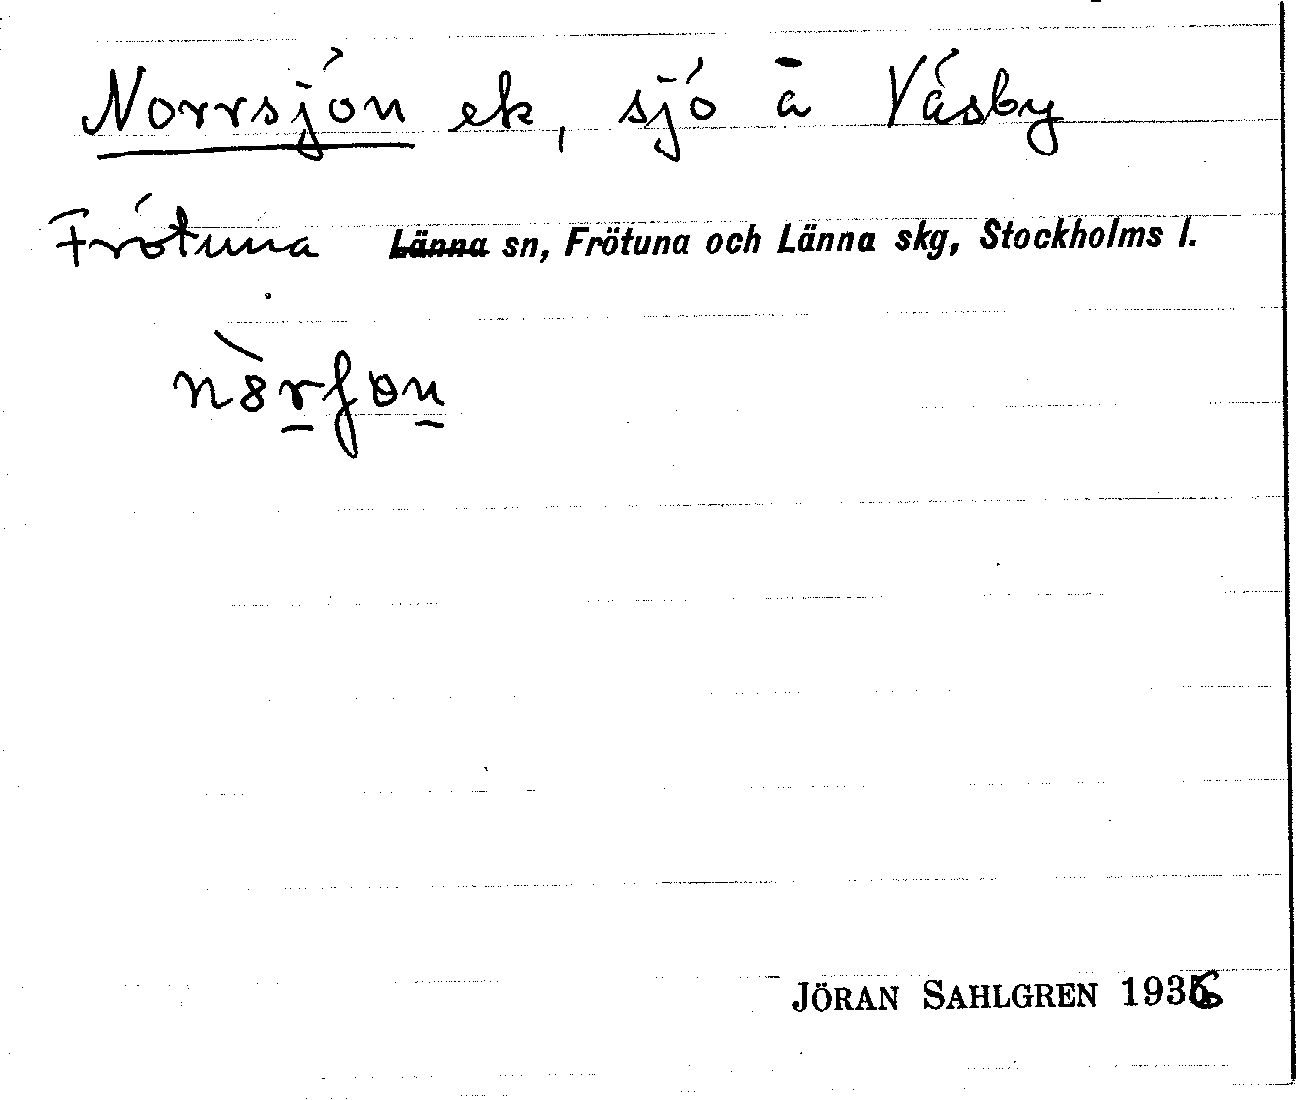 Norrsjön ek, sjö å Väsby
Frötuna Länna sn, Frötuna och Länna skg, Stockholms l.
JÖRAN SAHLGREN 1936